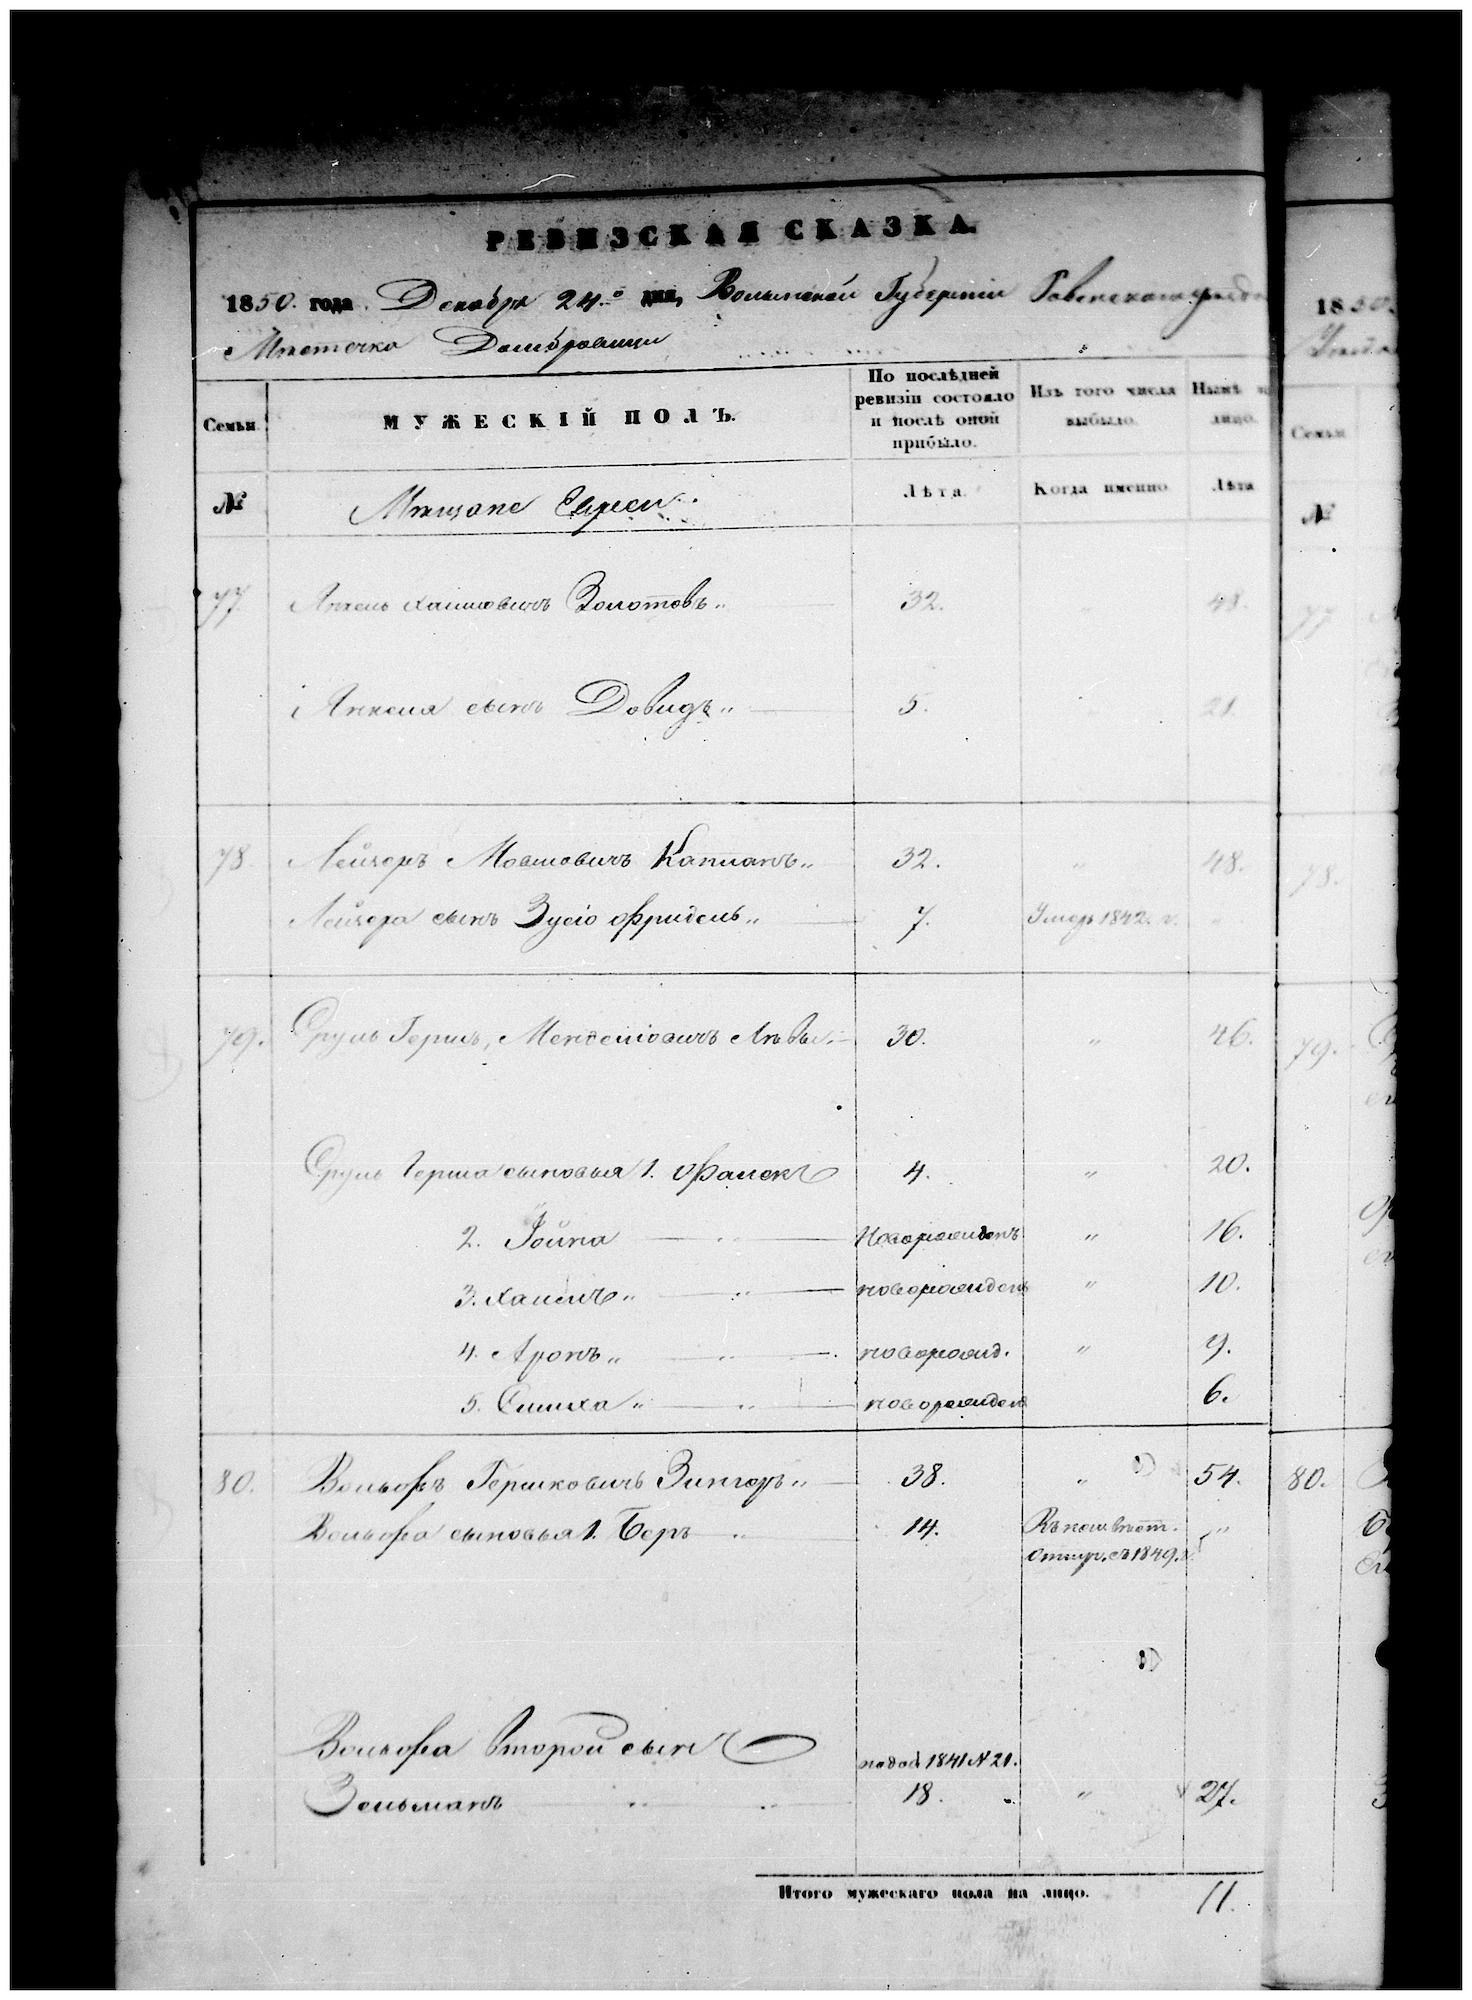 РЕВИЗСКАЯ СКАЗКА.
1850. года Декабря 24.го дня, Волынской Губерніи Ровенского уезда
Мѣстечка Домбровицы
Семьи.
МУЖЕСКІЙ ПОЛЪ.
По послѣдней ревизіи состояло и послѣ оной прибыло.
Изъ того числа выбыло.
Нынѣ на лицо.
№
Мѣщане Евреи
Лѣта.
Когда именно.
Лѣта
77 Янкель Хаимовичъ Золотовъ 32. " 48.
1 Янкеля сынъ Довидъ 5. 21.
78. Лейзоръ Мовшовичъ Капланъ 32. " 48.
Лейзора сынъ Зусіо Фридель 7. Умеръ 1842. г. "
79. Сруль Герш, Менделіовичъ 30. " 46.
Сруль Герша сыновья 1. Фалекъ 4. " 20.
2. Іойна Новорожденъ " 16.
3. Хаимъ новорожденъ " 10.
4. Аронъ новорожд. " 9.
5. Симха новорожденъ 6.
80. Вольфъ Гершковичъ Зингеръ 38. " 54.
Вольфа сыновья 1. Беръ 14. "
съ 1849. г.
Вольфа второй сынъ
1841 N 21.
Зельманъ 18. " 27.
Итого мужескаго пола на лицо. 11.
1850.
Семьи
№
77
78.
79.
80.